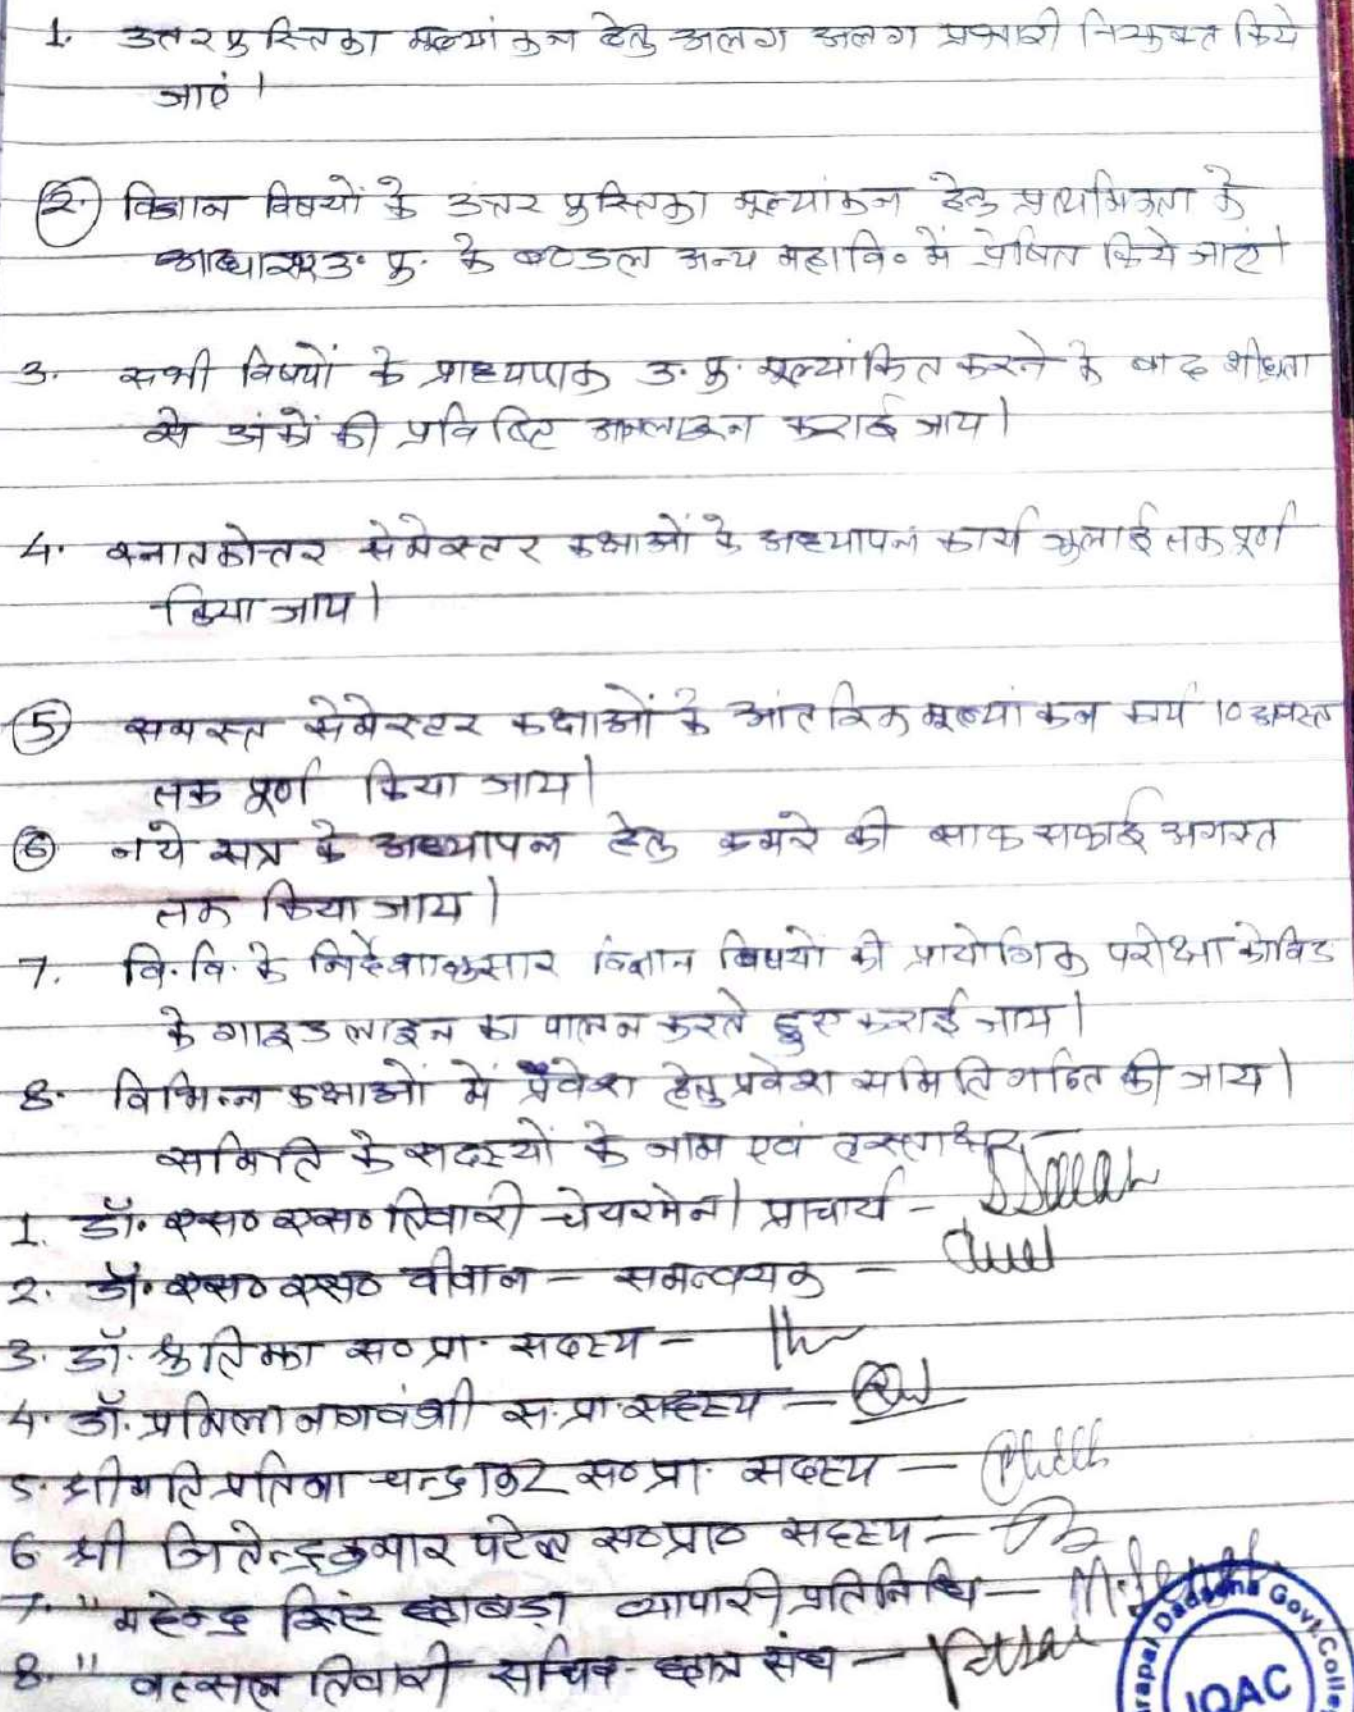 1. उत्तर पुस्तिका मूल्यांकन हेतु अलग अलग प्रभारी नियुक्त किये
जाएं।
2. विज्ञान विषयों के उत्तर पुस्तिका मूल्यांकन हेतु प्राथमिकता के
आधार पर उ. पु. के बण्डल अन्य महावि० में प्रेषित किये जाएं।
3. सभी विषयों के प्राध्यापक उ. पु. मूल्यांकित करने के बाद शीघ्रता
से अंकों की प्रविष्टि आनलाइन कराई जाय।
4. स्नातकोत्तर सेमेस्टर कक्षाओं के अध्यापन कार्य जुलाई तक पूर्ण
किया जाय।
5 समस्त सेमेस्टर कक्षाओं के आंतरिक मूल्यांकन कार्य 10 अगस्त
तक पूर्ण किया जाय।
6 नये सत्र के अध्यापन हेतु कमरे की साफ सफाई अगस्त
तक किया जाय।
7. वि.वि. के निर्देशानुसार विज्ञान विषयों की प्रायोगिक परीक्षा कोविड
के गाइडलाइन का पालन करते हुए कराई जाय।
8. विभिन्न कक्षाओं में प्रवेश हेतु प्रवेश समिति गठित की जाय।
समिति के सदस्यों के नाम एवं हस्ताक्षर -
1. डॉ. एस० एस० तिवारी चेयरमेन। प्राचार्य -
2. डॉ. एस० एस० दीवान - समन्वयक -
3. डॉ. स० प्रा. सदस्य -
4. डॉ. प्रमिला नागवंशी स. प्रा. सदस्य -
5. श्रीमति प्रतिभा चन्द्राकर स० प्रा. सदस्य -
6 श्री जितेन्द्र कुमार पटेल स० प्रा० सदस्य -
7. " महेन्द्र सिंह छाबड़ा व्यापारी प्रतिनिधि -
8. " वत्सल तिवारी सचिव छात्र संघ -
Govt. IQAC